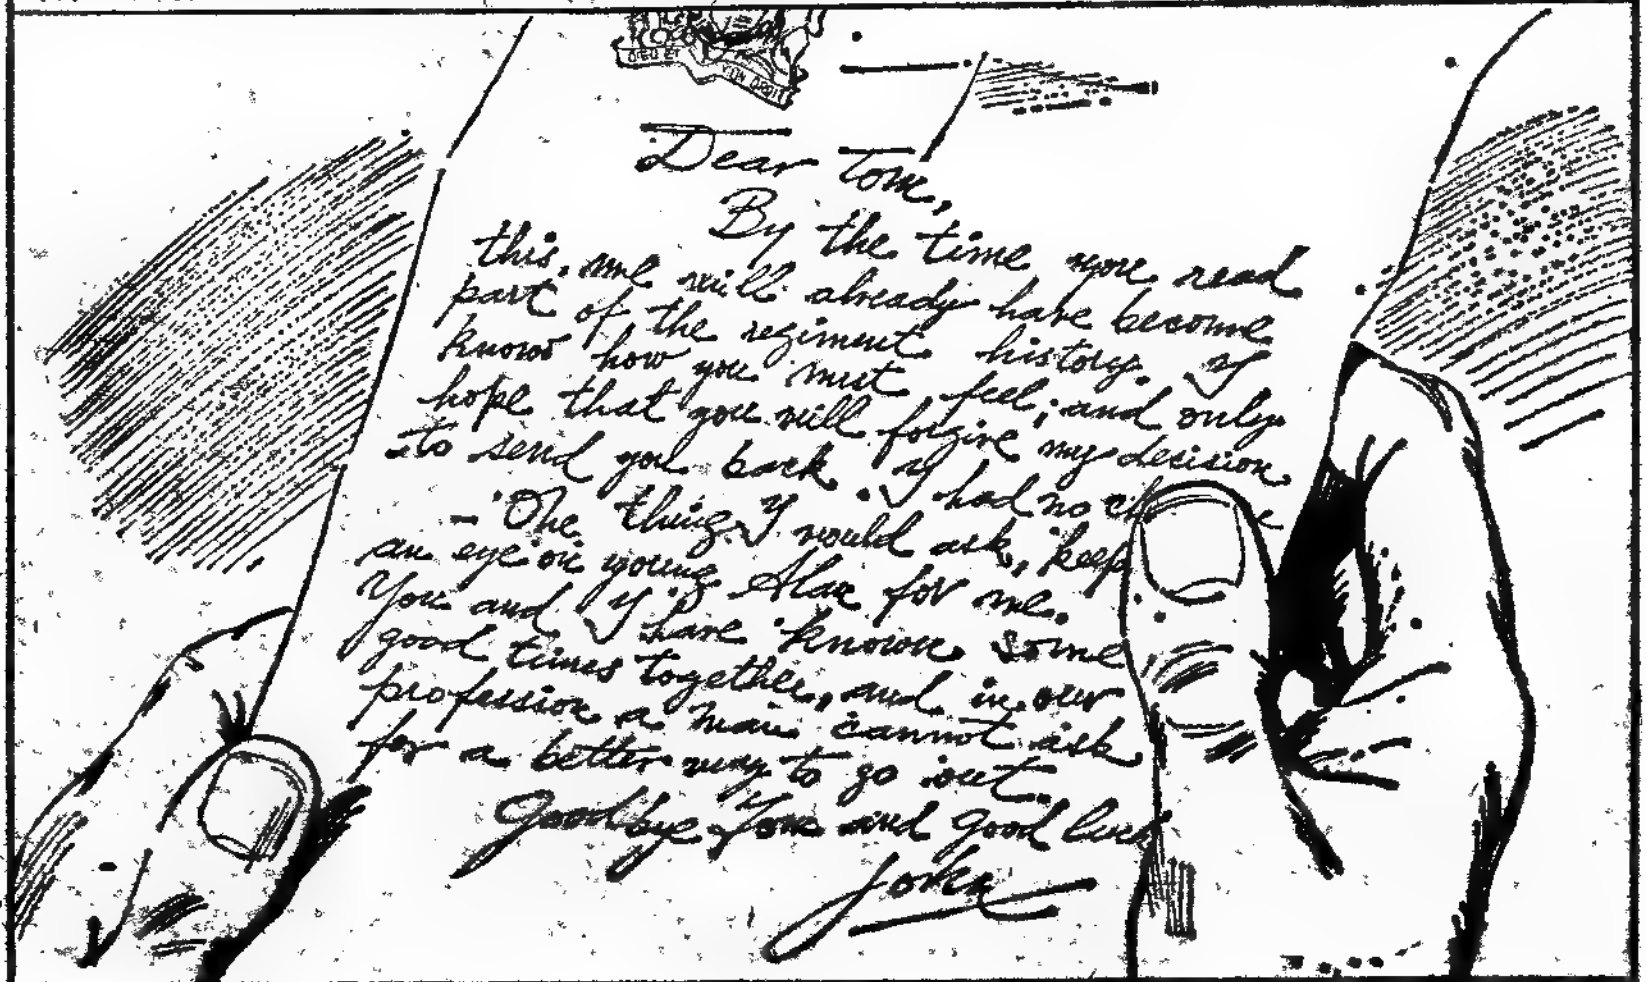 DIEU ET MON DROIT
Dear Tom,
By the time you read
this, we will already have become
part of the regiment history. I
know how you must feel; and only
hope that you will forgive my decision
to send you back. I had no
- One thing I would ask, keep
an eye on young Alan for me.
You and I have known some
good times together, and in our
profession a man cannot ask
for a better way to go out.
Goodbye Tom and good luck
John